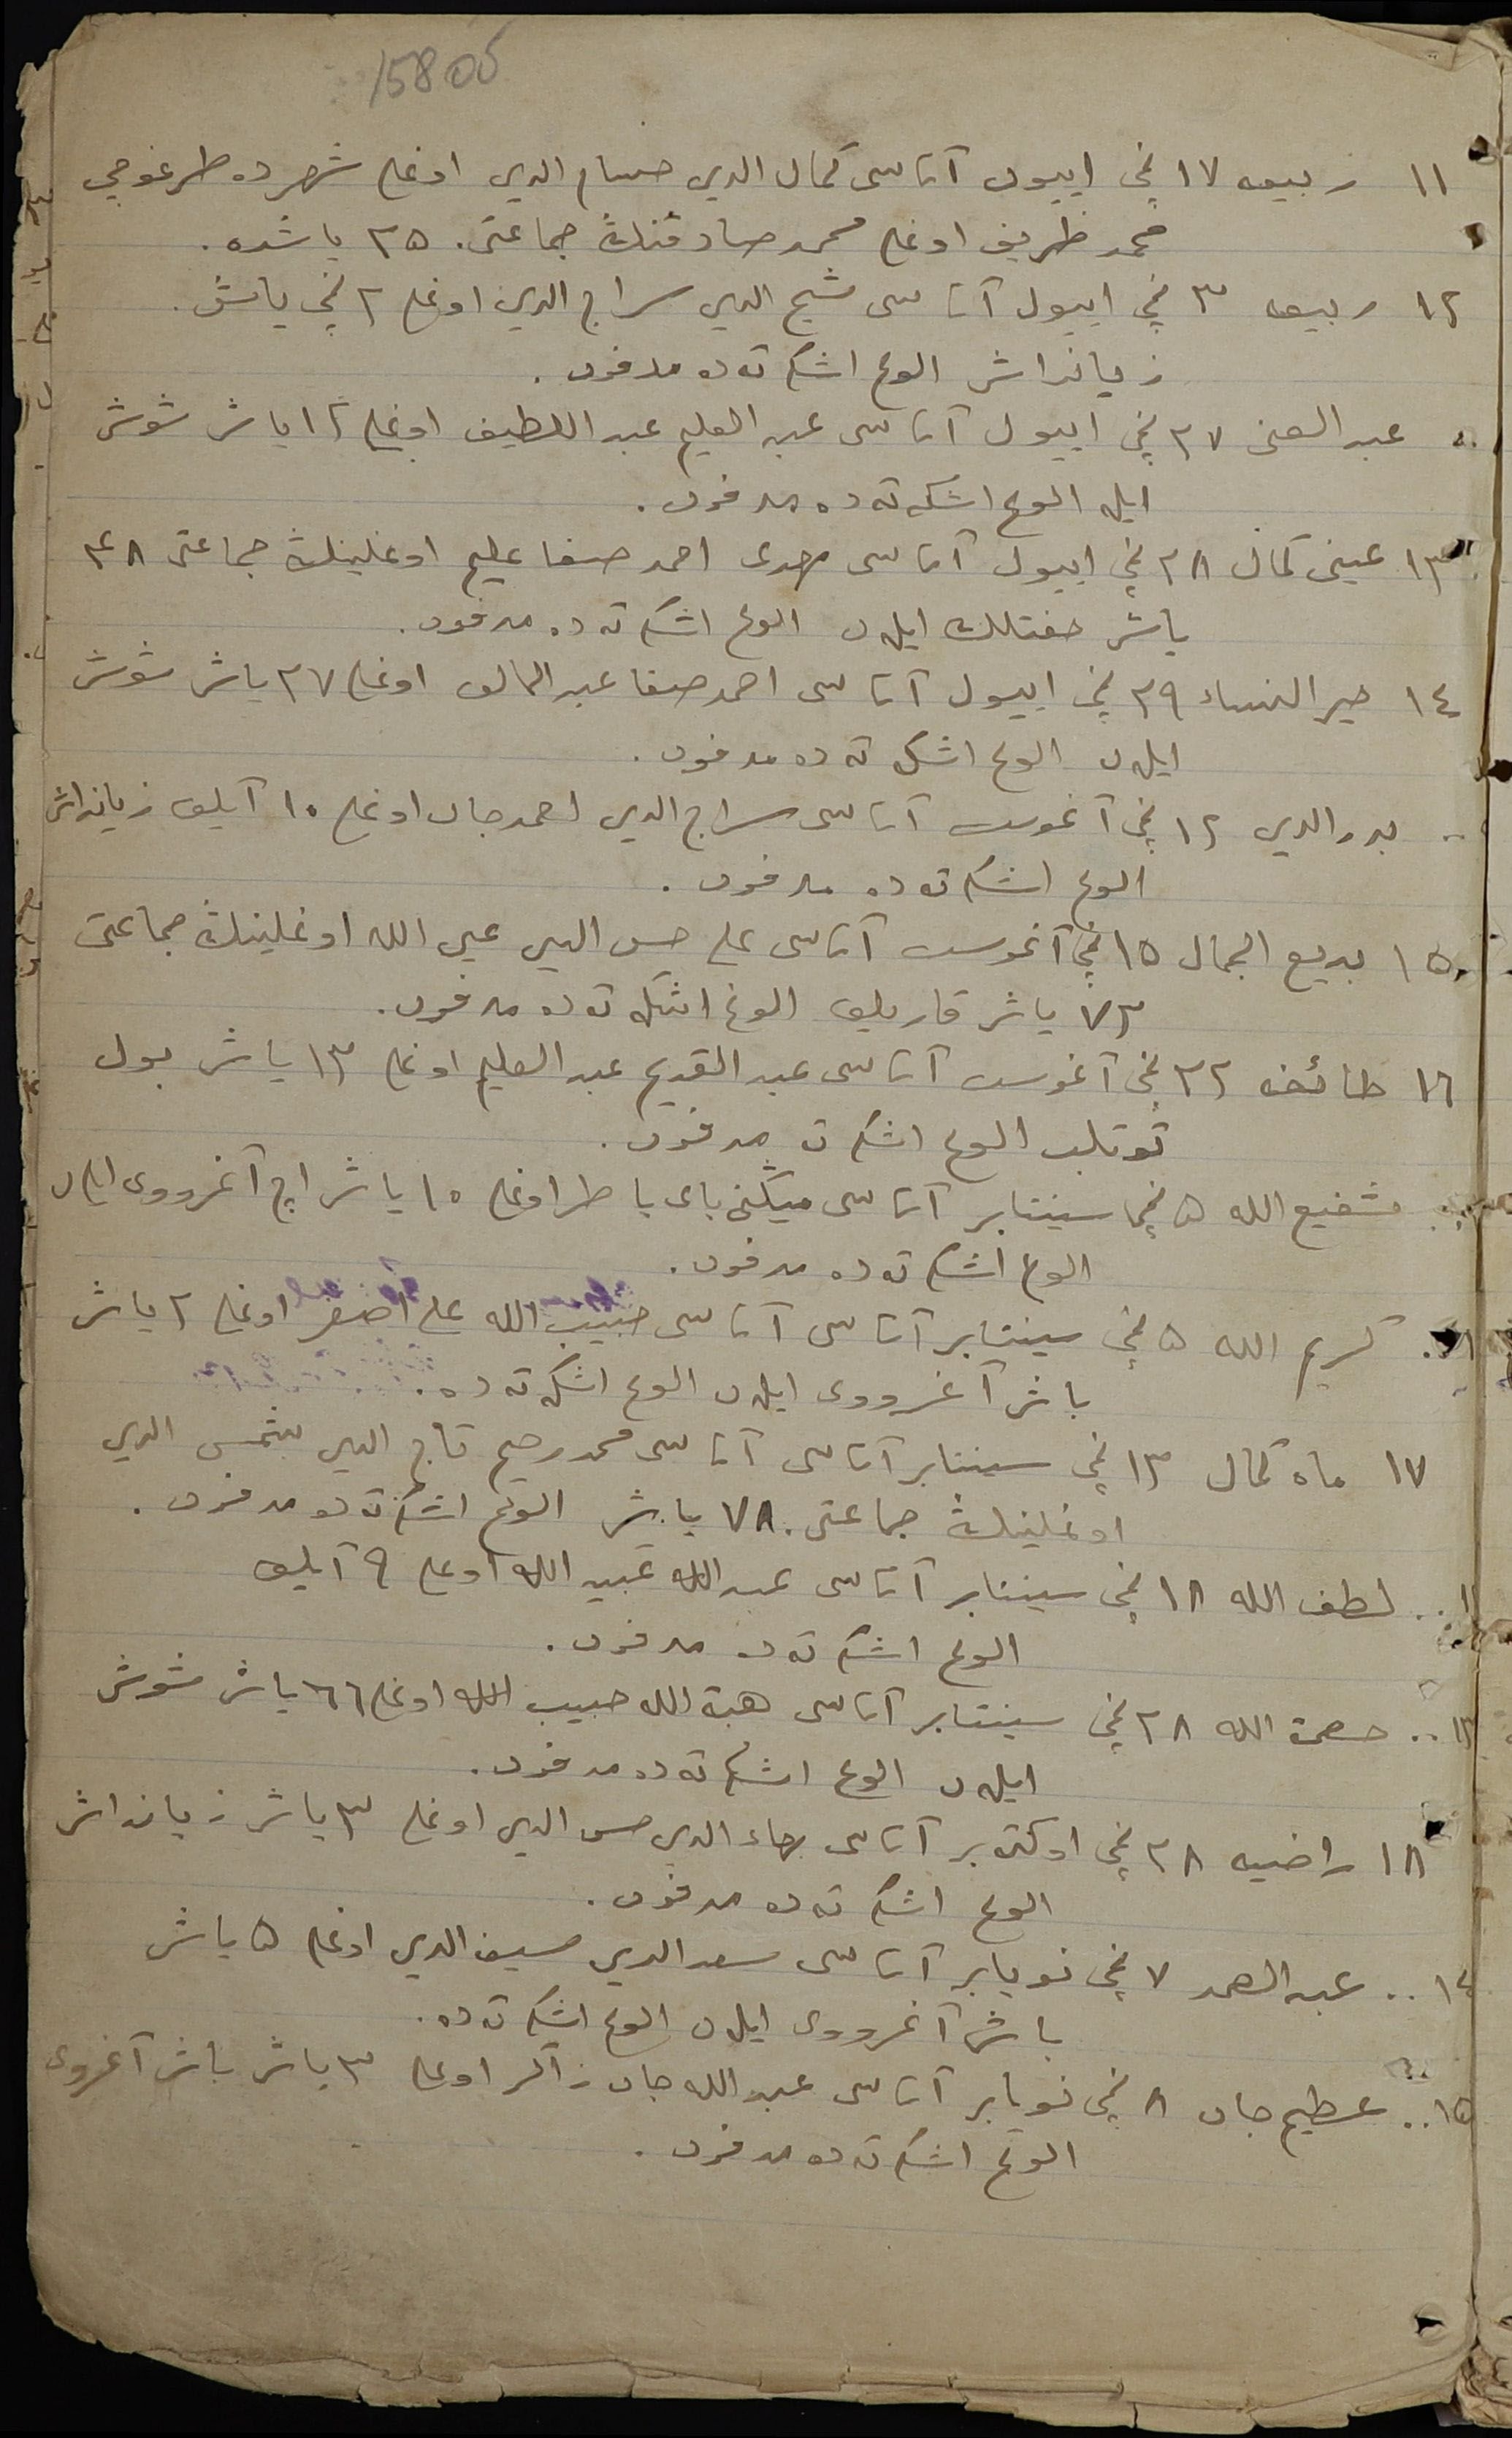 15805
١١ ربيعه ١٧ نچى اييول آتاسى كمال الدين حسام الدين اوغلى شهرده طرغوچى
محمد ظريف اوغلى محمد صادقننڭ جماعتى. ٣٥ ياشده.
١٢ ربيعه ٣ نچى اييول آتاسى شيخ الدين سراج الدين اوغلى ٢ نچى ياش.
زيانداش الوغ اشكرته ده مدفون.
عبد الغنى ٢٧ نچى اييول آتاسى عبد العليم عبد اللطيف اوغلى ١٢ ياش شوش
ايله الوغ اشكرته ده مدفون.
١٣ عينى كمال ٢٨ نچى اييول آتاسى مهدى احمد صفا عليم اوغلينڭ جماعتى ٤٨
ياش ايلان الوغ اشكرته ده مدفون.
١٤ خير النساء ٢٩ نچى اييول آتاسى احمد صفا عبد الخالق اوغلى ٢٧ ياش شوش
ايلان الوغ اشكرته ده مدفون.
بدر الدين ١٢ نچى آغوست آتاسى سراج الدين احمدجان اوغلى ١٠ آيلق زيانداش
الوغ اشكرته ده مدفون.
١٥ بديع الجمال ١٥ نچى آغوست آتاسى على حسن الدين عين الله اوغلينڭ جماعتى
٧٣ ياش قارتلق الوغ اشكرته ده مدفون.
١٦ طائفه ٢٢ نچى آغوست آتاسى عبد القديم عبد العليم اوغلى ١٣ ياش بول
توتلب الوغ اشكرته مدفون.
شفيع الله ٥ نچى سينتابر آتاسى ميكنى باى باطر اوغلى ١٠ ياش اچ آغرووى ايلان
الوغ اشكرته ده مدفون.
كريم الله ٥ نچى سينتابر آتاسى آتاسى حبيب الله على اصغر اوغلى ٢ ياش
باش آغرووى ايلان الوغ اشكرته ده.
١٧ ماه كمال ١٣ نچى سينتابر آتاسى آتاسى محمد رحيم تاج الدين شمس الدين
اوغلينڭ جماعتى. ٧٨ ياش الوغ اشكرته ده مدفون.
لطف الله ١٨ نچى سينتابر آتاسى عبد الله عبيد الله اوغلى ٩ آيلق
الوغ اشكرته ده مدفون.
١٣.. عصمة الله ٢٨ نچى سينتابر آتاسى هبة الله حبيب الله اوغلى ٦٦ ياش شوش
ايلان الوغ اشكرته ده مدفون.
١٨ راضيه ٢٨ نچى اوكتوبر آتاسى بهاء الدين حسن الدين اوغلى ٣ ياش زيانداش
الوغ اشكرته ده مدفون.
١٤.. عبد الصمد ٧ نچى نويابر آتاسى سعد الدين سيف الدين اوغلى ٥ ياش
باش آغرووى ايلان الوغ اشكرته ده.
١٥.. عظيم جان ٨ نچى نويابر آتاسى عبد الله جان ذاكر اوغلى ٣ ياش باش آغروى
الوغ اشكرته ده مدفون.